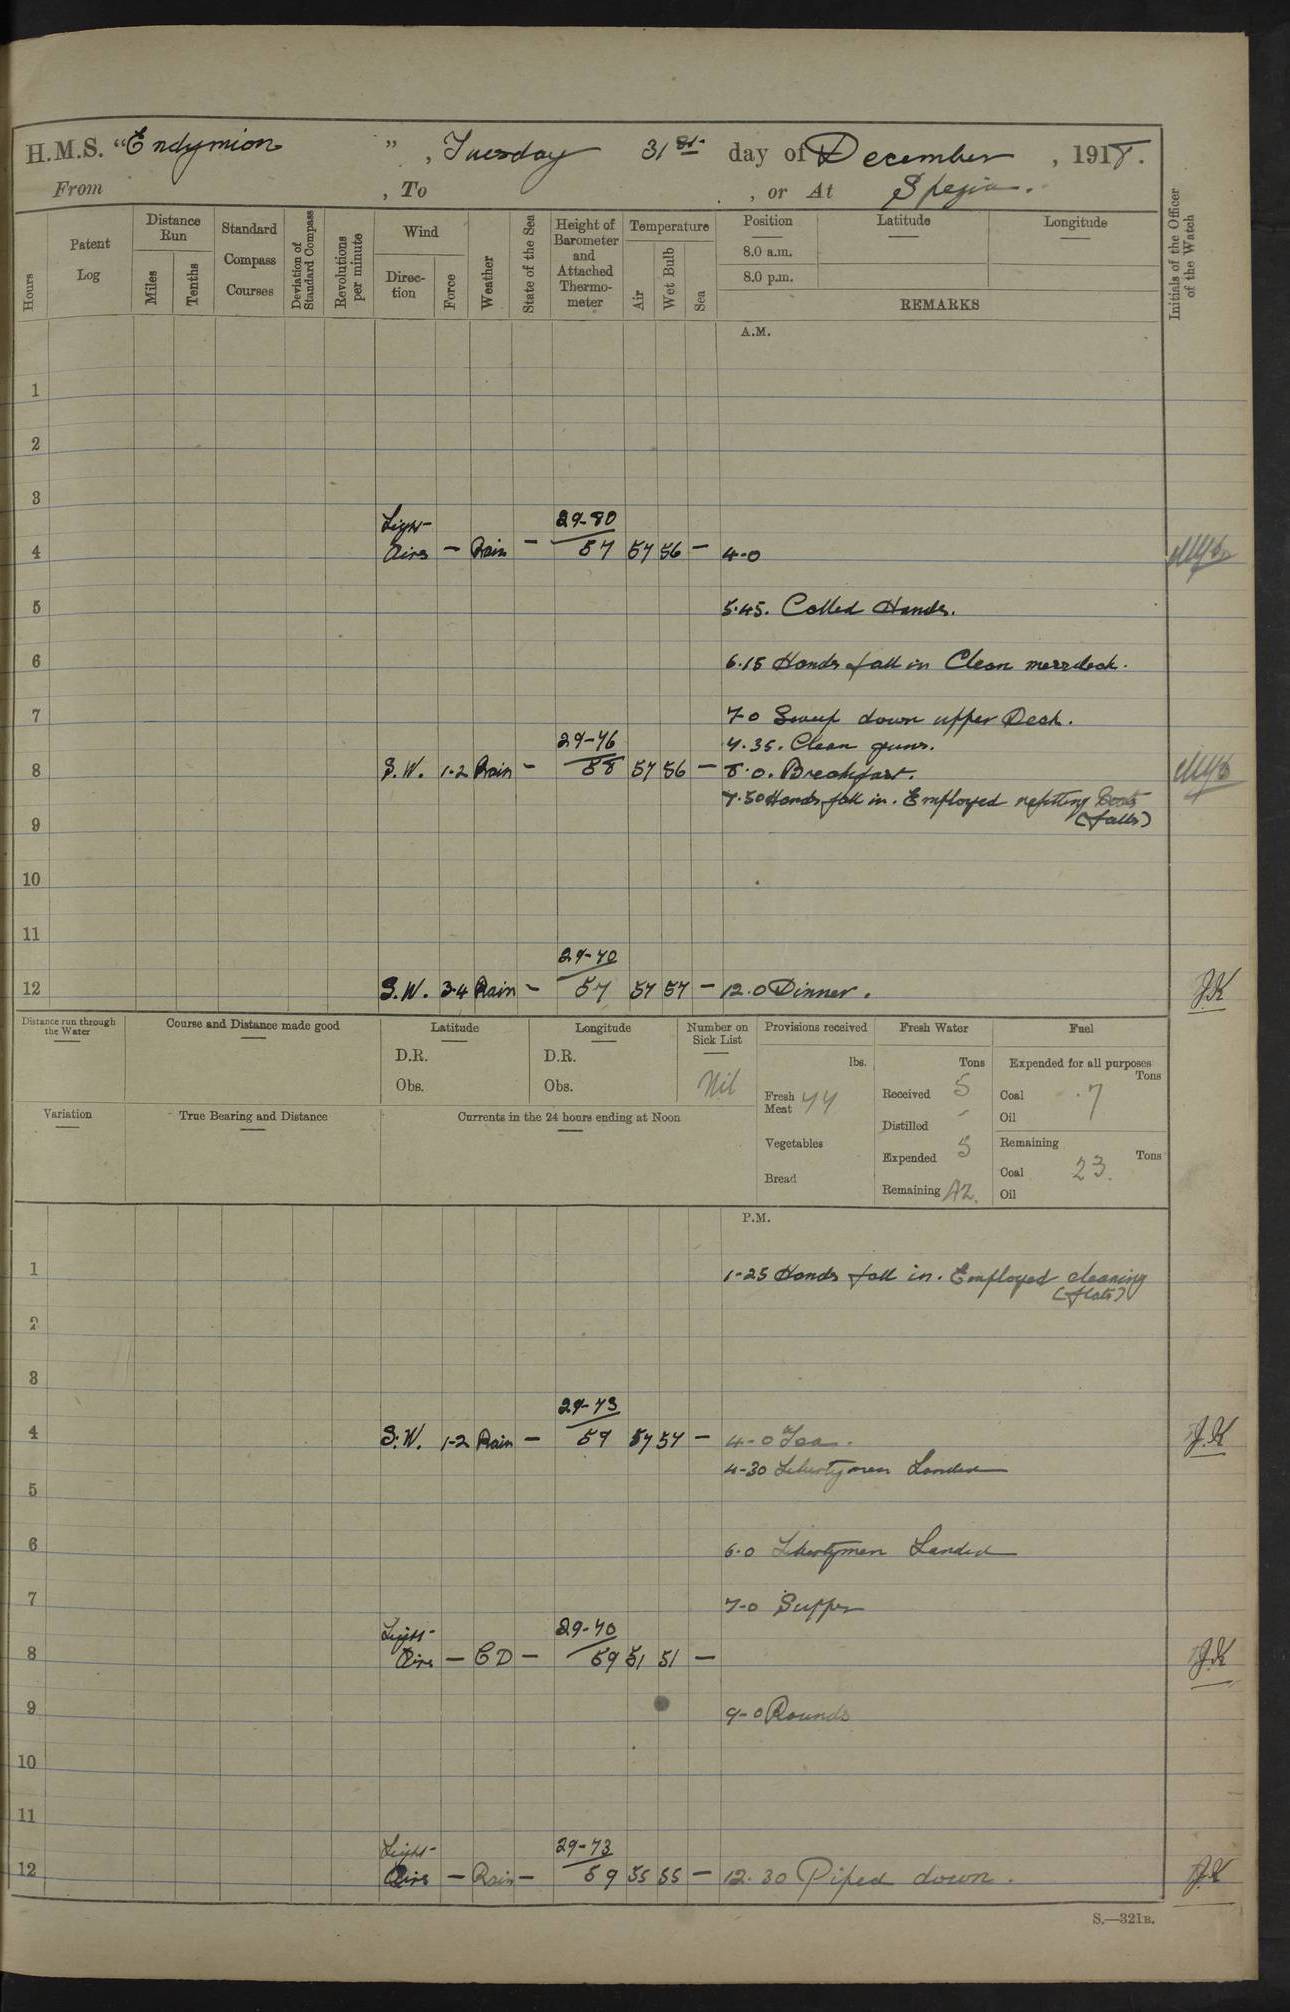 H.M.S. "Endymion", Tuesday 31st day of December, 1918.
From , To , or At Spezia.
Hours
Patent Log
Distance Run
Miles
Tenths
Standard Compass Courses
Deviation of Standard Compass
Revolutions per minute
Wind
Direction
Force
Weather
State of the Sea
Height of Barometer and Attached Thermometer
Temperature
Air
Wet Bulb
Sea
Position
Latitude
Longitude
8.0 a.m.
8.0 p.m.
REMARKS
Initials of the Officer of the Watch
A.M.
1
2
3
Light 29-80
4 Airs — Rain — 57 57 56 — 4-0
5 5.45. Called Hands.
6 6.15 Hands fall in Clean messdeck.
7 7-0 Sweep down upper Deck.
29-76 7.35. Clean guns.
8 S.W. 1-2 Rain — 58 57 56 — 8.0. Breakfast.
7.50 Hands fall in. Employed refitting boats
9 (falls)
10
11
29-70
12 S.W. 3-4 Rain — 57 57 57 — 12.0 Dinner. J.K
Distance run through the Water
Course and Distance made good
Latitude
D.R.
Obs.
Longitude
D.R.
Obs.
Number on Sick List
Nil
Provisions received
lbs.
Fresh Meat 44
Vegetables
Bread
Fresh Water
Tons
Received 5
Distilled -
Expended 5
Remaining 42.
Fuel
Expended for all purposes
Tons
Coal 7
Oil
Remaining
Tons
Coal 23.
Oil
Variation
True Bearing and Distance
Currents in the 24 hours ending at Noon
P.M.
1 1-25 Hands fall in. Employed cleaning
(flats)
2
3
29-73
4 S.W. 1-2 Rain — 59 57 57 — 4-0 Tea. J.K
4-30 Libertymen Landed
5
6 6.0 Libertymen Landed
7 7-0 Supper
Light 29-70
8 Airs — C D — 59 51 51 — J.K
9 9-0 Rounds
10
11
Light 29-73
12 Airs — Rain — 59 55 55 — 12.30 Piped down. J.K
S.—321B.